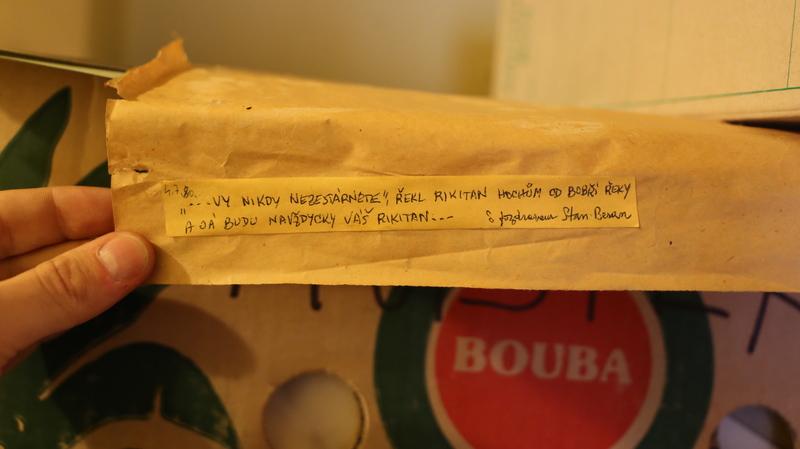 4.7.80.
"...VY NIKDY NEZESTÁRNETE", ŘEKL RIKITAN HOCHŮM OD BOBŘÍ ŘEKY
"A JÁ BUDU NAVŽDYCKY VÁŠ RIKITAN...
S pozdravem Stan. Beran
BOUBA